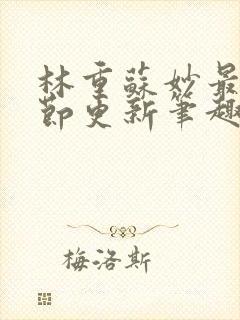 林重蘇妙最
節更新筆趣
梅洛斯